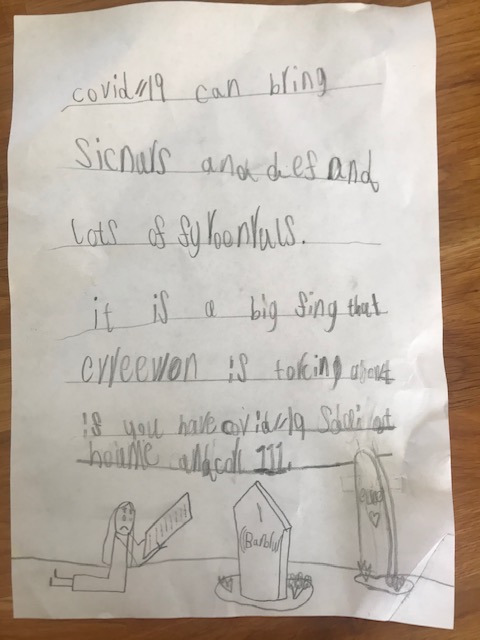 covid//19 can bring
Sicnuls and def and
lots of fyroonruls.
it is a big fing that
evreewon is torcing about
is you have covid//19 Sdai at
houme and coll 111.